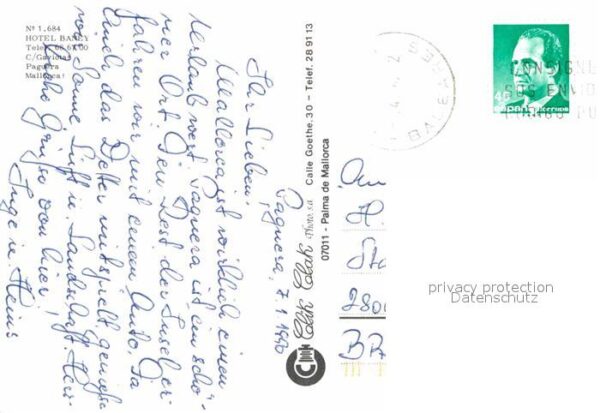 Nº 1.684
HOTEL BANEY
Telef. 68.67.00
C/Gaviotas
Paguera
Mallorca
Paguera, 7.1.1990
Ihr Lieben!
Mallorca ist wirklich einen
Urlaub wert. Paguera ist ein schö-
ner Ort. Den Rest der Insel er-
fahren wir mit einem Auto. Da
auch das Wetter mitspielt, genießen
wir Sonne, Luft u. Landschaft. Herz-
liche Grüße von hier!
Inge u. Heins
Clik Clak Photo s.a. Calle Goethe, 30 – Telef. 28 91 13
07011 - Palma de Mallorca
BALEARES
CONSIGNE
SUS ENVIO
45
españa
correos
An
H
Sta
280
BR
privacy protection
Datenschutz